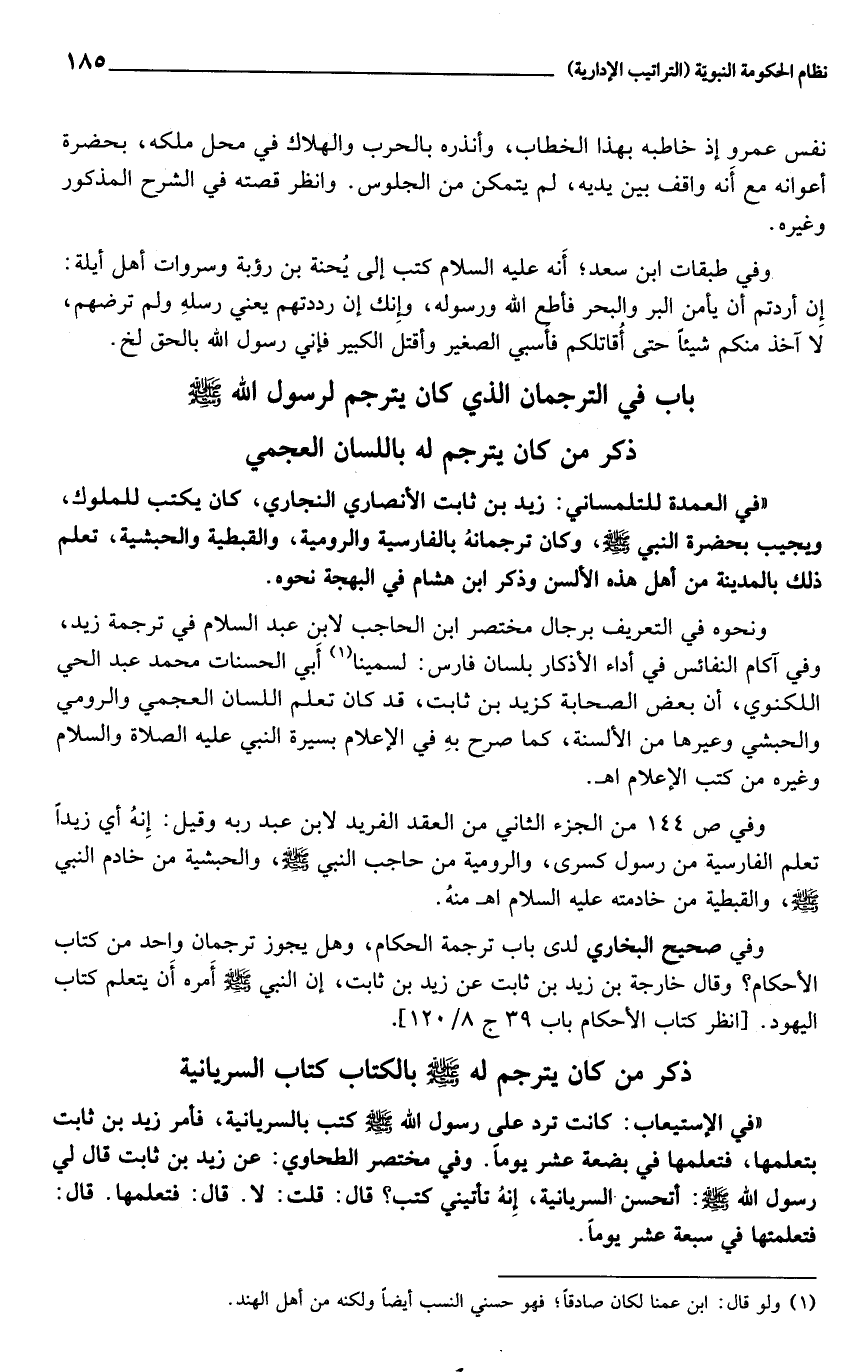 نظام الحكومة النبويّة (التراتيب الإدارية) ١٨٥
نفس عمرو إذ خاطبه بهذا الخطاب، وأنذره بالحرب والهلاك في محل ملكه، بحضرة
أعوانه مع أَنه واقف بين يديه، لم يتمكن من الجلوس. وانظر قصته في الشرح المذكور
وغيره.
وفي طبقات ابن سعد؛ أَنه عليه السلام كتب إلى يُحنة بن رؤبة وسروات أهل أيلة:
إِن أردتم أن يأمن البر والبحر فأطع الله ورسوله، وإِنك إن رددتهم يعني رسلهِ ولم ترضهم،
لا آخذ منكم شيئاً حتى أُقاتلكم فأسبي الصغير وأقتل الكبير فإني رسول الله بالحق لخ.
باب في الترجمان الذي كان يترجم لرسول الله ﷺ
ذكر من كان يترجم له باللسان العجمي
«في العمدة للتلمساني: زيد بن ثابت الأنصاري النجاري، كان يكتب للملوك،
ويجيب بحضرة النبي ﷺ، وكان ترجمانهُ بالفارسية والرومية، والقبطية والحبشية، تعلم
ذلك بالمدينة من أهل هذه الألسن وذكر ابن هشام في البهجة نحوه.
ونحوه في التعريف برجال مختصر ابن الحاجب لابن عبد السلام في ترجمة زيد،
وفي آكام النفائس في أداء الأذكار بلسان فارس: لسمينا(١) أَبي الحسنات محمد عبد الحي
اللكنوي، أن بعض الصحابة كزيد بن ثابت، قد كان تعلم اللسان العجمي والرومي
والحبشي وعيرها من الألسنة، كما صرح بهِ في الإعلام بسيرة النبي عليه الصلاة والسلام
وغيره من كتب الإعلام اهـ.
وفي ص ١٤٤ من الجزء الثاني من العقد الفريد لابن عبد ربه وقيل: إِنهُ أي زيداً
تعلم الفارسية من رسول كسرى، والرومية من حاجب النبي ﷺ، والحبشية من خادم النبي
ﷺ، والقبطية من خادمته عليه السلام اهـ منهُ.
وفي صحيح البخاري لدى باب ترجمة الحكام، وهل يجوز ترجمان واحد من كتاب
الأحكام؟ وقال خارجة بن زيد بن ثابت عن زيد بن ثابت، إن النبي ﷺ أَمره أَن يتعلم كتاب
اليهود. [انظر كتاب الأحكام باب ٣٩ ج ٨/ ١٢٠].
ذكر من كان يترجم له ﷺ بالكتاب كتاب السريانية
«في الإستيعاب: كانت ترد على رسول الله ﷺ كتب بالسريانية، فأمر زيد بن ثابت
بتعلمها، فتعلمها في بضعة عشر يوماً. وفي مختصر الطحاوي: عن زيد بن ثابت قال لي
رسول الله ﷺ: أتحسن السريانية، إِنهُ تأتيني كتب؟ قال: قلت: لا. قال: فتعلمها. قال:
فتعلمتها في سبعة عشر يوماً.
(١) ولو قال: ابن عمنا لكان صادقاً؛ فهو حسني النسب أيضاً ولكنه من أهل الهند.